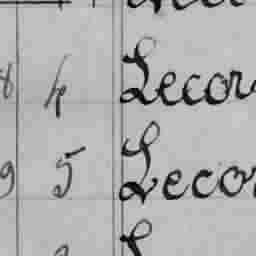 8 4 Lecor
9 5 Lecor